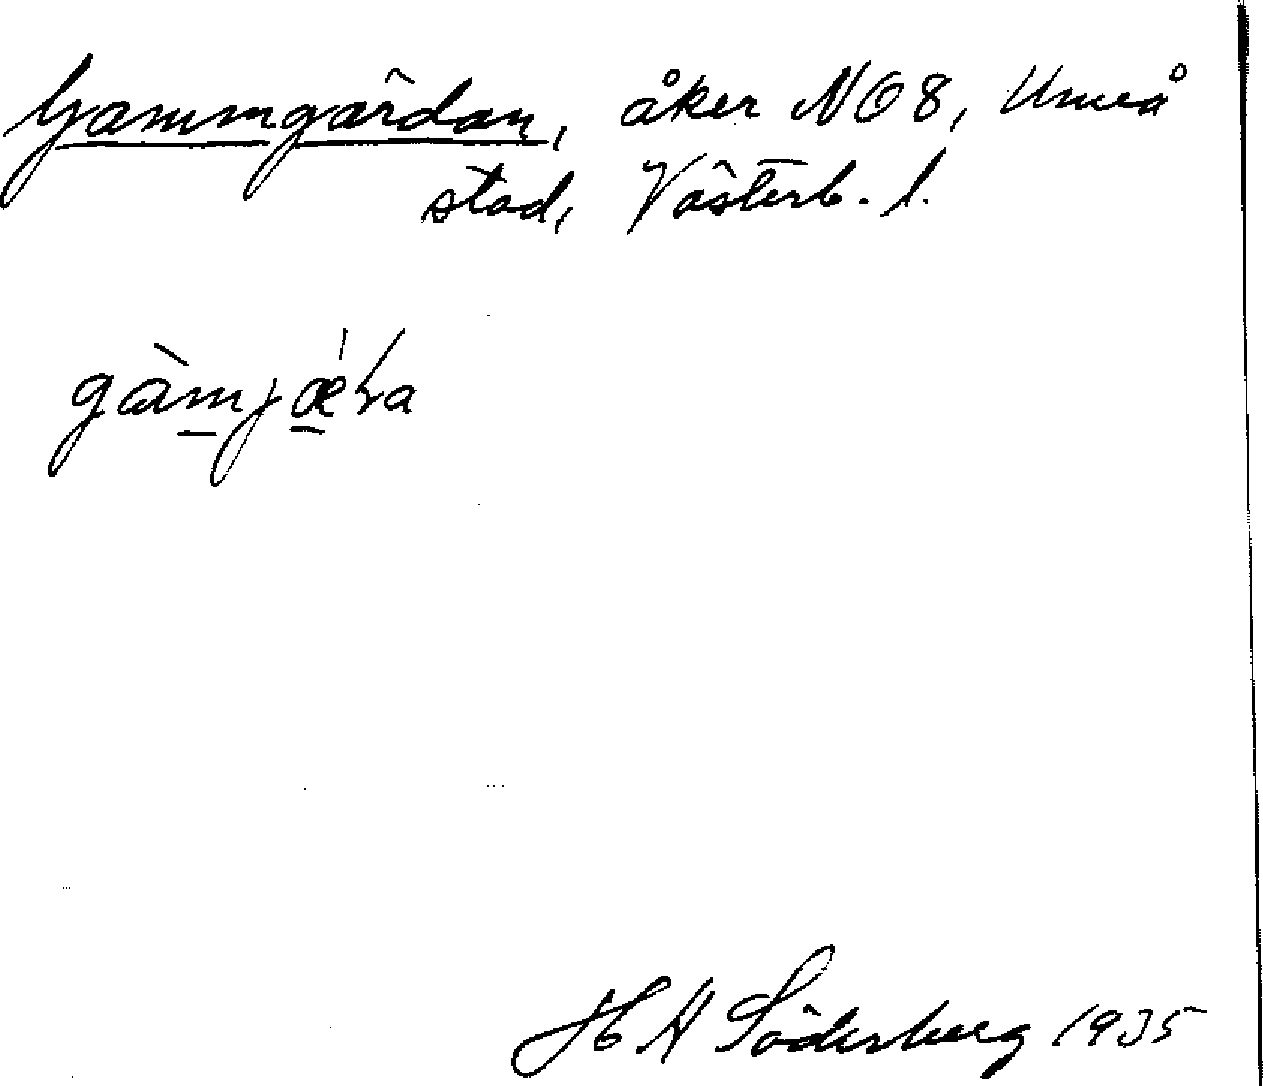 Gammgärdan, åker NO8, Umeå
stad, Västerb. l.
gàm̲jǽ̲ɽa
H A Söderberg 1935